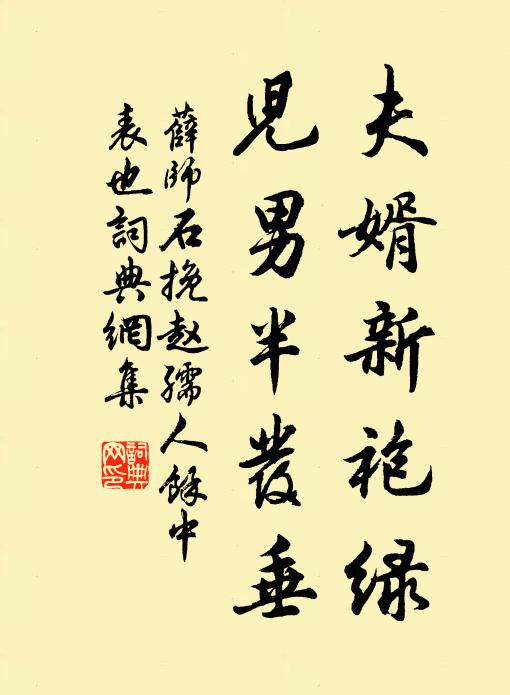 夫婿新袍绿
儿男半发垂
薛師石挽赵孺人餘中
表也詞典網集
詞典
网印